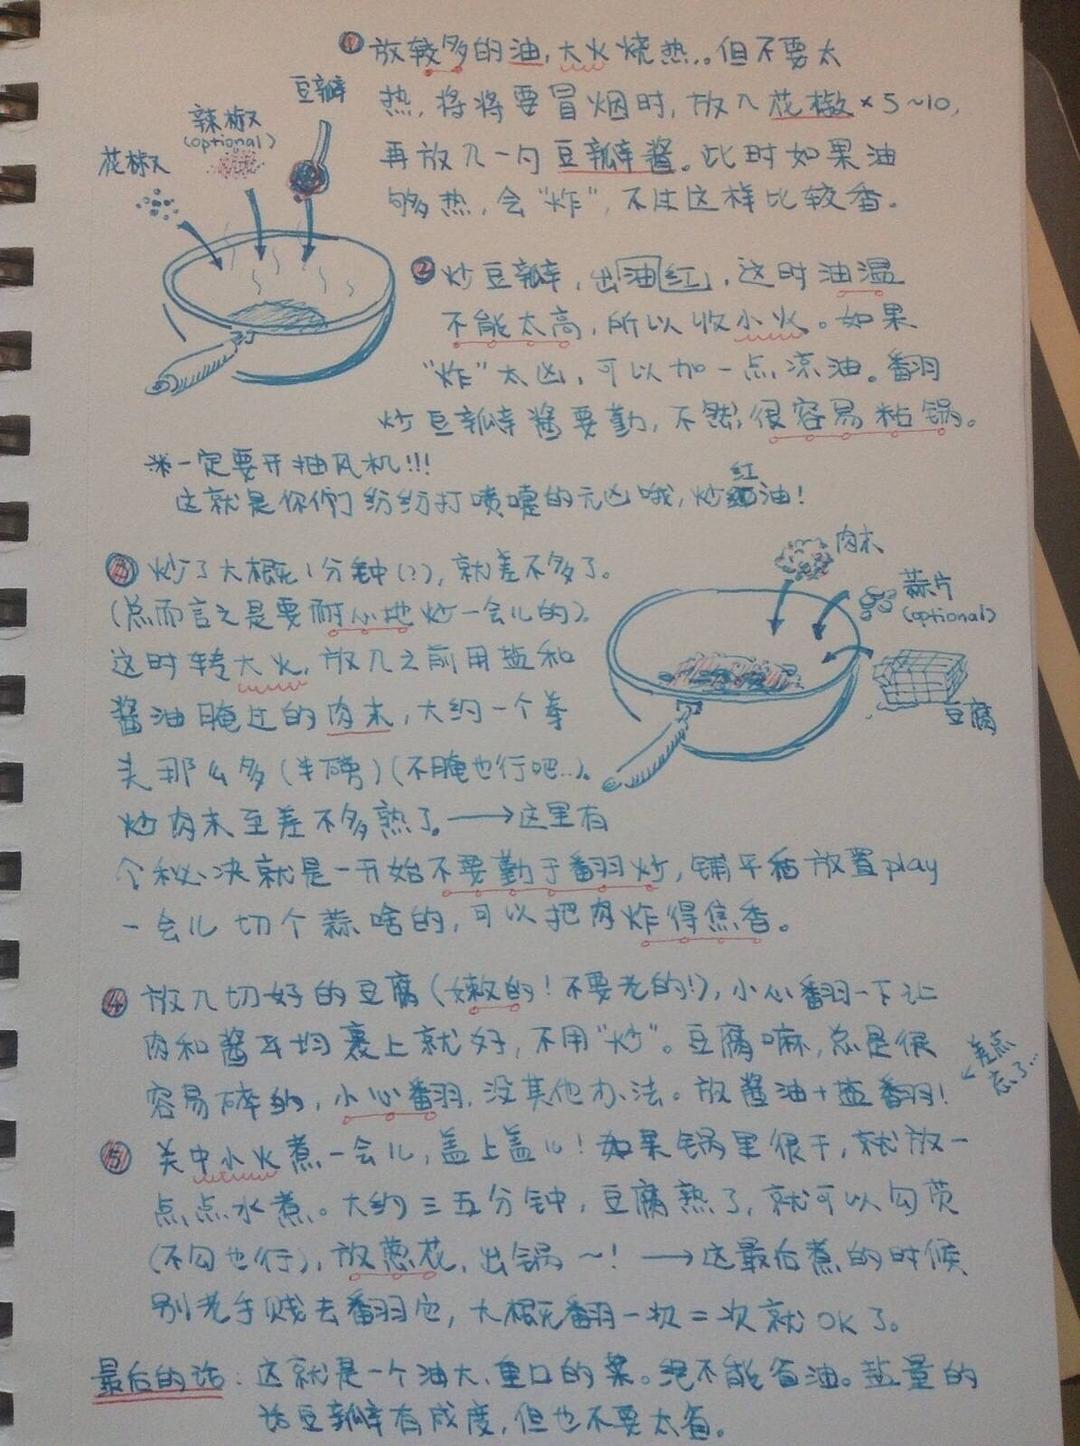 ① 放较多的油,大火烧热。但不要太
豆瓣
热,将将要冒烟时,放入花椒×5~10,
辣椒
(optional)
花椒
再放入一勺豆瓣酱。此时如果油
够热,会"炸",不过这样比较香。
② 炒豆瓣,出油红,这时油温
不能太高,所以收小火。如果
"炸"太凶,可以加一点凉油。翻
炒豆瓣酱要勤,不然很容易粘锅。
※一定要开抽风机!!!
红
这就是你们纷纷打喷嚏的元凶哦,炒油!
③ 炒了大概1分钟(?),就差不多了。
肉末
蒜片
(optional)
豆腐
(总而言之是要耐心地炒一会儿的)。
这时转大火,放入之前用盐和
酱油腌过的肉末,大约一个拳
头那么多(半磅)(不腌也行吧..)。
炒肉末至差不多熟了。→这里有
个秘诀就是一开始不要勤于翻炒,铺平稍放置play
一会儿切个蒜啥的,可以把肉炸得焦香。
④ 放入切好的豆腐(嫩的!不要老的!),小心翻一下让
肉和酱均裹上就好,不用"炒"。豆腐嘛,总是很
容易碎的,小心翻,没其他办法。放酱油+盐翻!
←差点
忘了...
⑤ 关中小火煮一会儿,盖上盖儿!如果锅里很干,就放一
点点水煮。大约三五分钟,豆腐熟了,就可以勾芡
(不勾也行),放葱花,出锅~!→这最后煮的时候
别老手贱去翻它,大概翻一次二次就OK了。
最后的话:这就是一个油大、重口的菜。绝不能省油。盐量的
话豆瓣有咸度,但也不要太省。